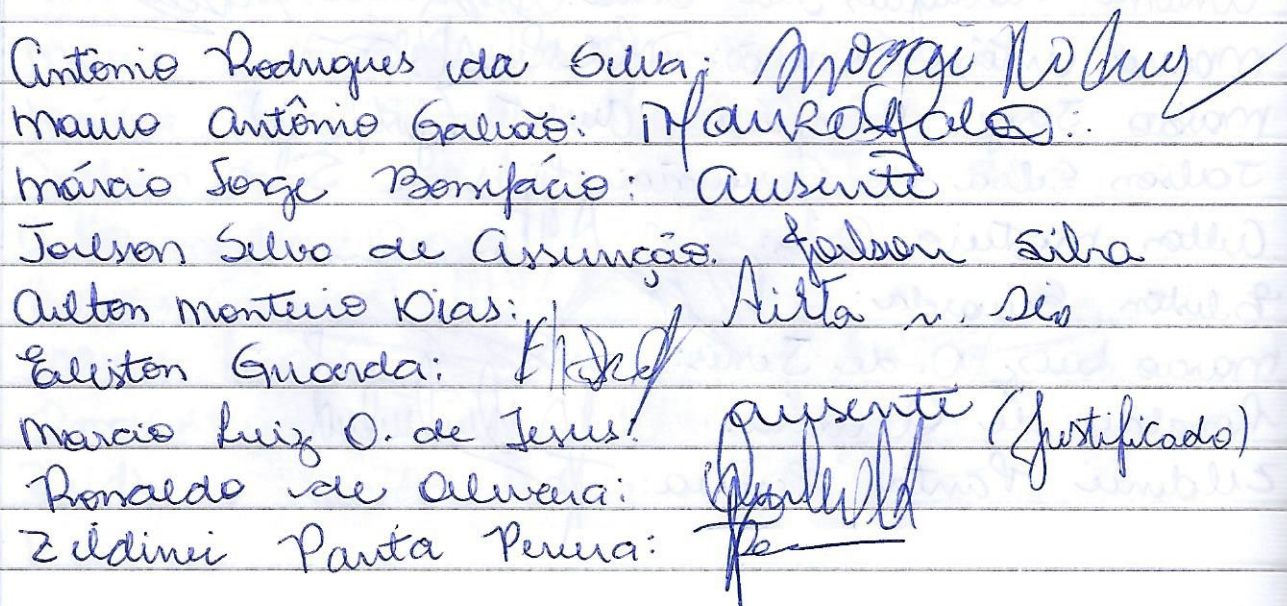 Antônio Rodrigues da Silva:
Mauro Antônio Galvão: Mauro Galvão.
Márcio Jorge Bonifácio: Ausente
Joelson Silva de Assunção. Joelson Silva
Ailton Monteiro Dias: Ailton
Eliston Guarda:
Marcio Luiz O. de Jesus: Ausente (Justificado)
Ronaldo de Oliveira:
Zildinei Panta Pereira: